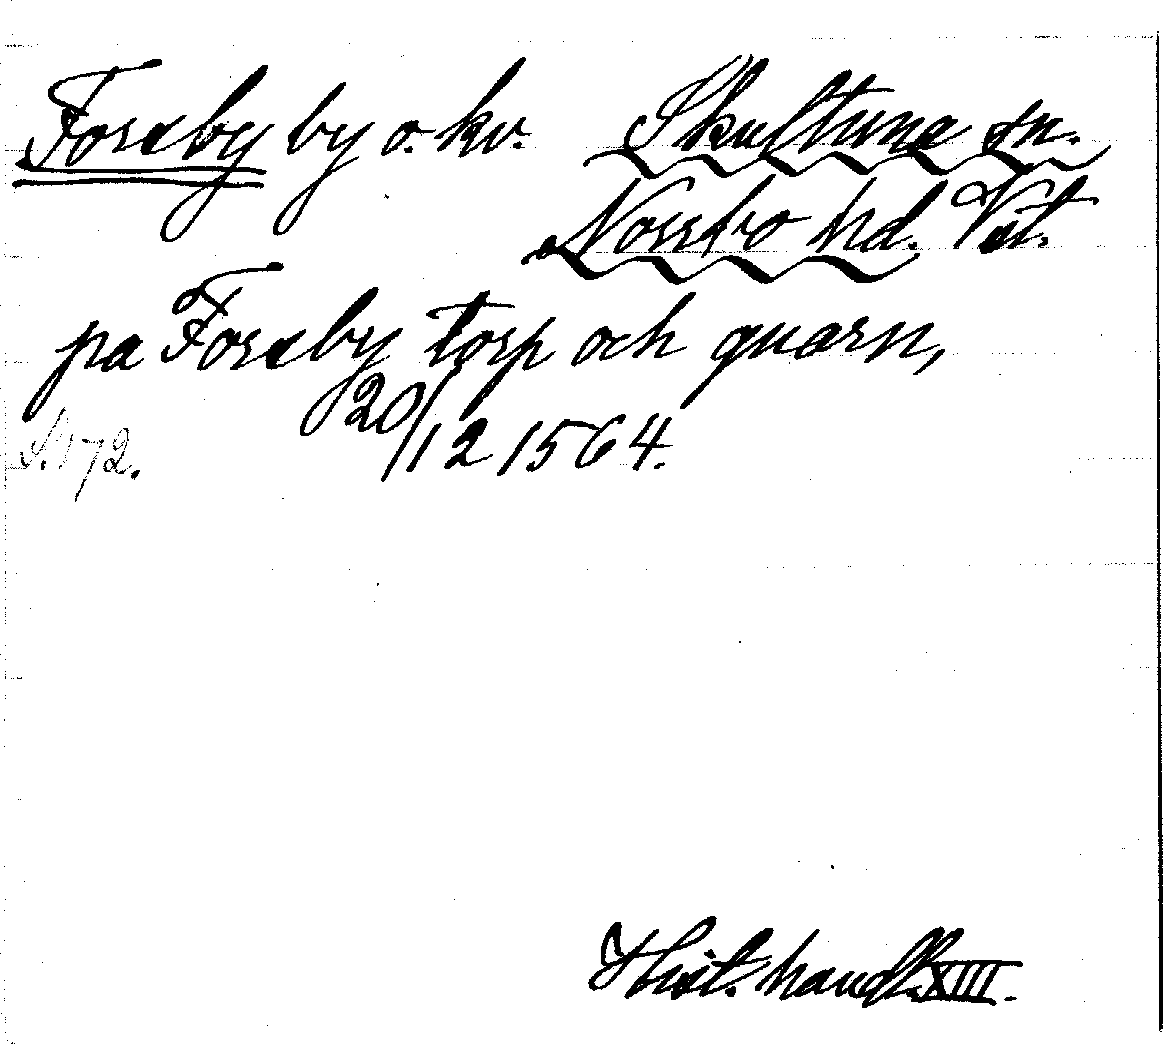 Forsby by o. kv. Skultuna sn.
Norrbo hd. Vst.
pa Forsby torp och quarn,
S. 172. 20/12 1564.
Hist. handl. XIII.